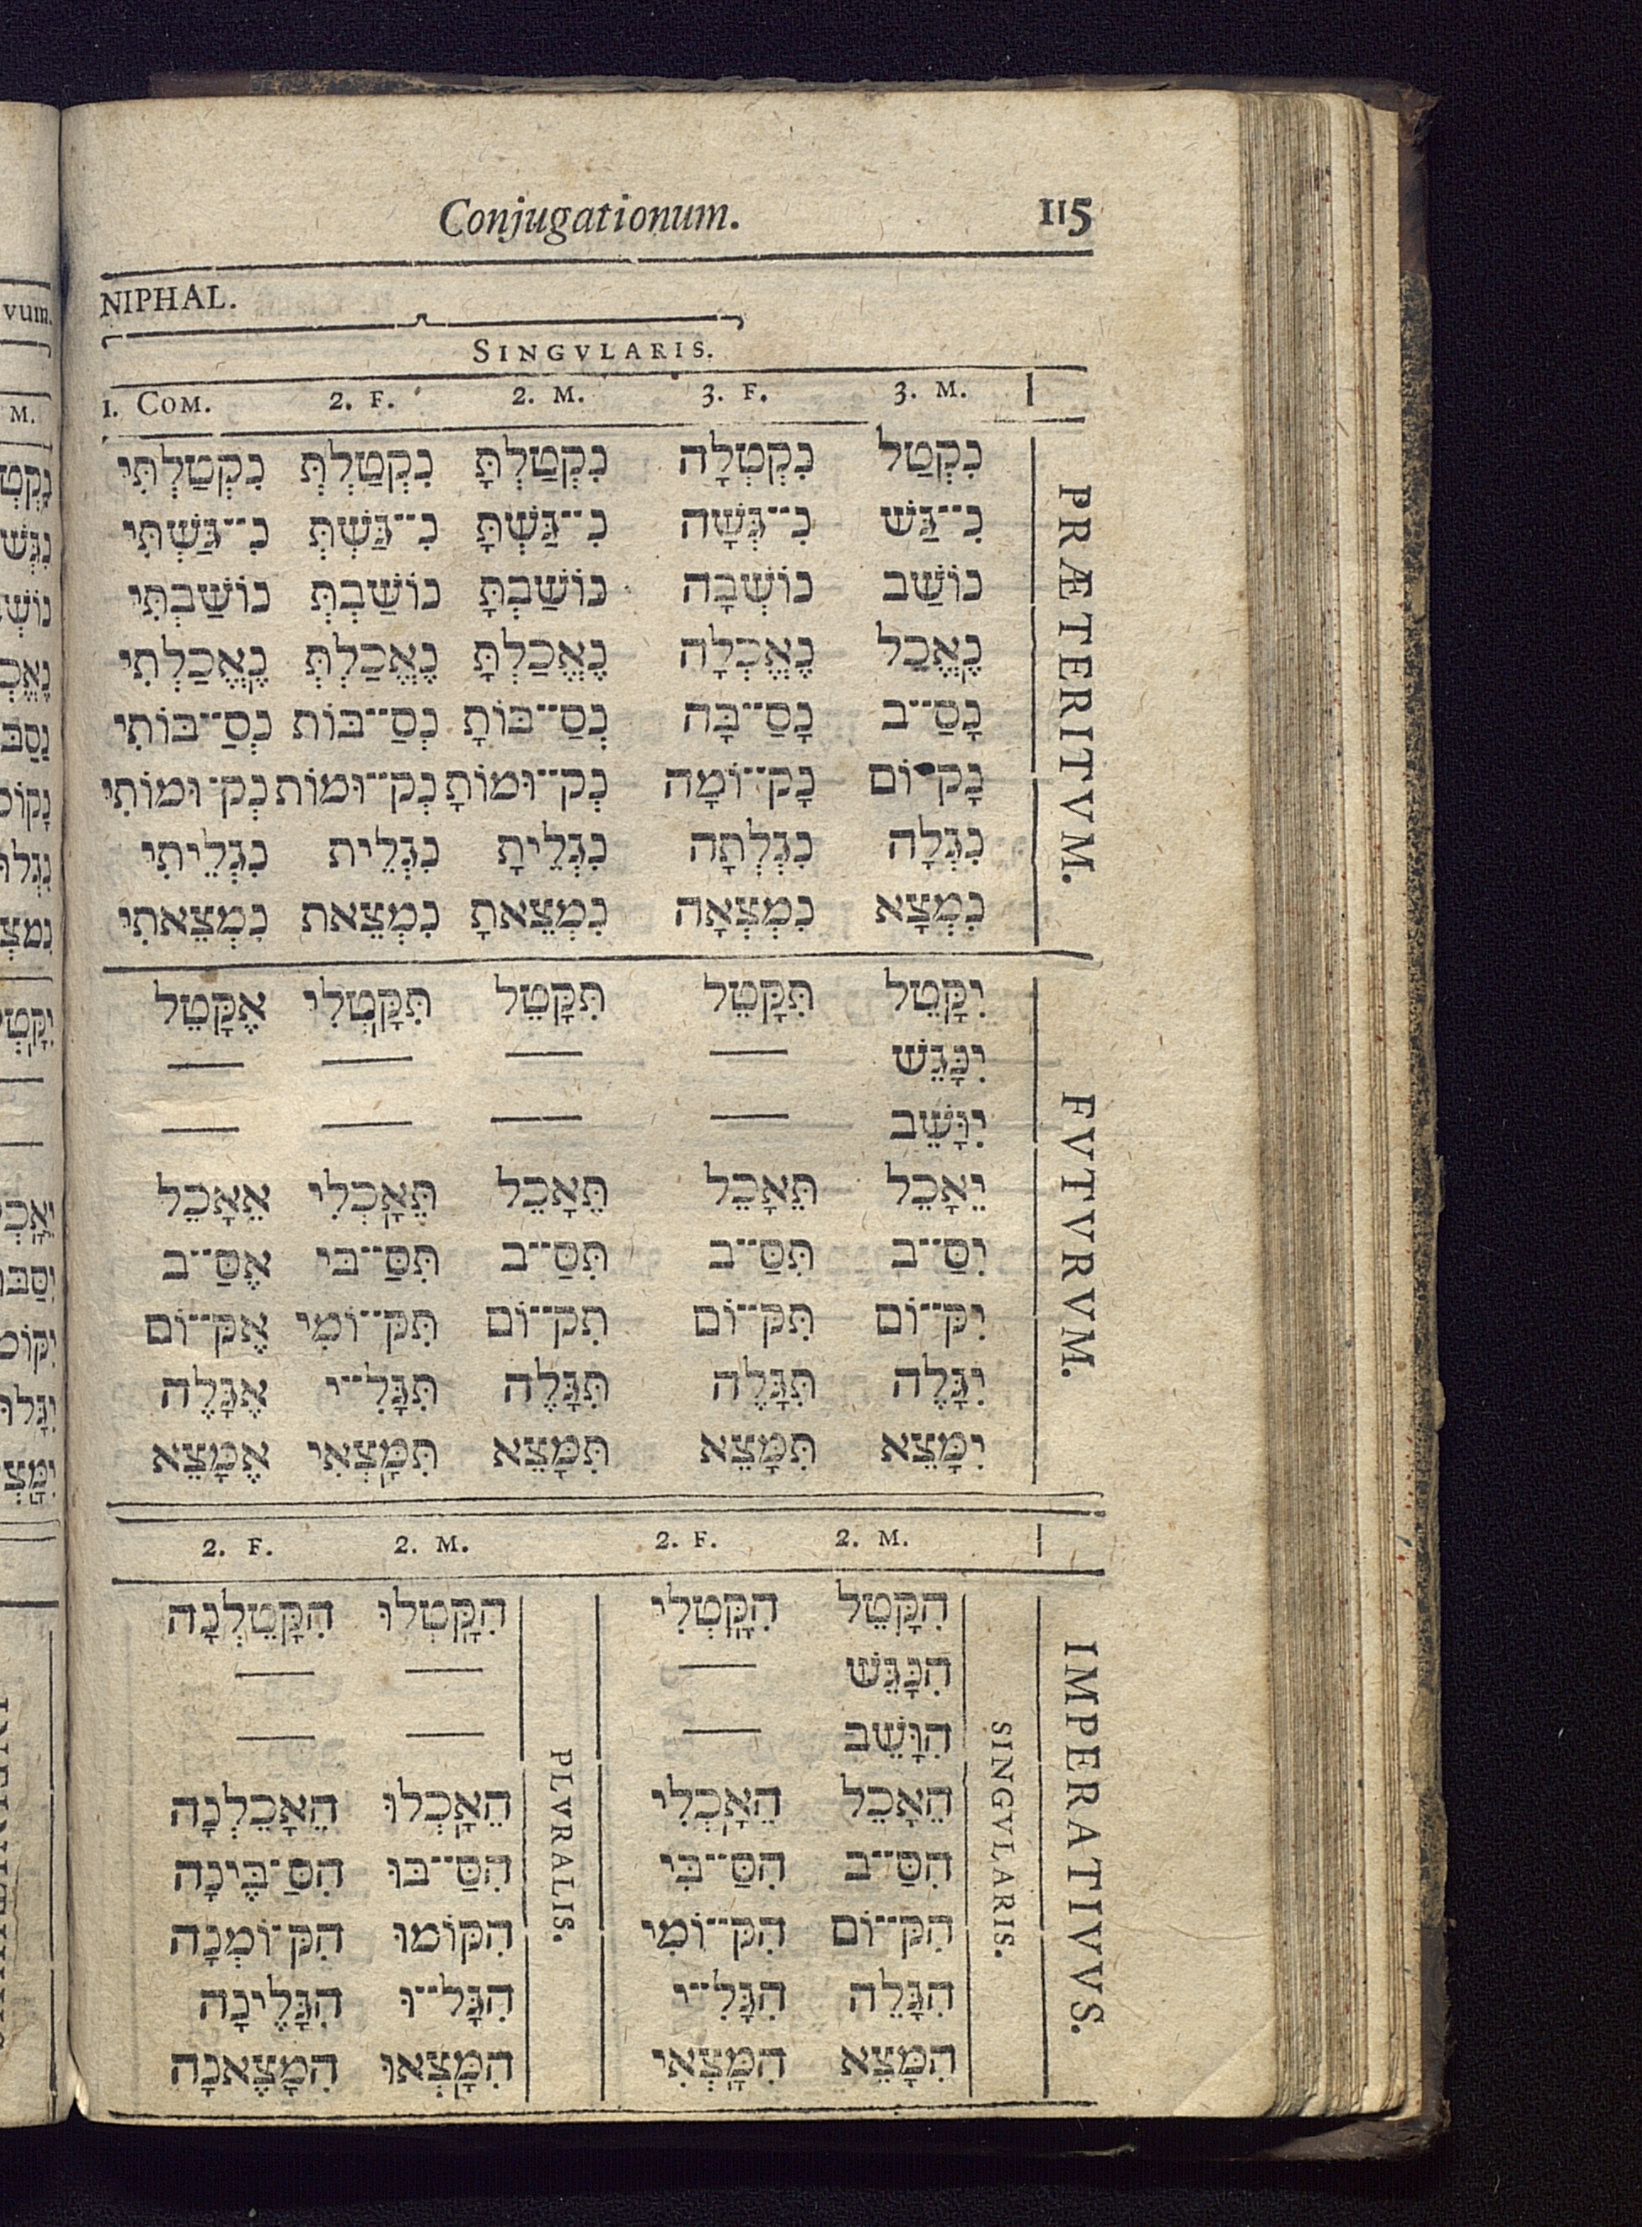 Conjugationum. 115
NIPHAL.
SINGVLARIS.
1. COM. 2. F. 2. M. 3. F. 3. M.
PRÆTERITVM.
נִקְטַל נִקְטְלָה נִקְטַלְתָּ נִקְטַלְתְּ נִקְטַלְתִּי
נִ־־גַּשׁ נִ־־גְּשָׁה נִ־־גַּשְׁתָּ נִ־־גַּשְׁתְּ נִ־־גַּשְׁתִּי
נוֹשַׁב נוֹשְׁבָה נוֹשַׁבְתָּ נוֹשַׁבְתְּ נוֹשַׁבְתִּי
נֶאֱכַל נֶאֱכְלָה נֶאֱכַלְתָּ נֶאֱכַלְתְּ נֶאֱכַלְתִּי
נָסַ־־ב נָסַ־־בָּה נְסַ־־בּוֹתָ נְסַ־־בּוֹת נְסַ־־בּוֹתִי
נָק־וֹם נָק־־וֹמָה נְק־־וּמוֹתָ נְק־־וּמוֹת נְק־וּמוֹתִי
נִגְלָה נִגְלְתָה נִגְלֵיתָ נִגְלֵית נִגְלֵיתִי
נִמְצָא נִמְצְאָה נִמְצֵאתָ נִמְצֵאת נִמְצֵאתִי
FVTVRVM.
יִקָּטֵל תִּקָּטֵל תִּקָּטֵל תִּקָּטְלִי אֶקָּטֵל
יִנָּגֵשׁ — — — —
יִוָּשֵׁב — — — —
יֵאָכֵל תֵּאָכֵל תֵּאָכֵל תֵּאָכְלִי אֵאָכֵל
יִסַּ־־ב תִּסַּ־־ב תִּסַּ־־ב תִּסַּ־־בּי אֶסַּ־־ב
יִקּ־־וֹם תִּקּ־־וֹם תִקּ־־וֹם תִּקּ־־וֹמִי אֶקּ־־וֹם
יִגָּלֶה תִּגָּלֶה תִּגָּלֶה תִּגָּלִ־־י אֶגָּלֶה
יִמָּצֵא תִּמָּצֵא תִּמָּצֵא תִּמָּצְאִי אֶמָּצֵא
2. F. 2. M. 2. F. 2. M.
IMPERATIVVS.
SINGVLARIS.
PLVRALIS.
הִקָּטֵל הִקָּטְלִי הִקָּטְלוּ הִקָּטֵלְנָה
הִנָּגֵשׁ — — —
הִוָּשֵׁב — — —
הֵאָכֵל הֵאָכְלִי הֵאָכְלוּ הֵאָכֵלְנָה
הִסַּ־־ב הִסַּ־־בִּי הִסַּ־־בּוּ הִסַּ־בֶּינָה
הִקּ־־וֹם הִקּ־־וֹמִי הִקּוֹמוּ הִקּ־וֹמְנָה
הִגָּלֵה הִגָּלִ־־י הִגָּל־־וּ הִגָּלֶינָה
הִמָּצֵא הִמָּצְאִי הִמָּצְאוּ הִמָּצֶאנָה